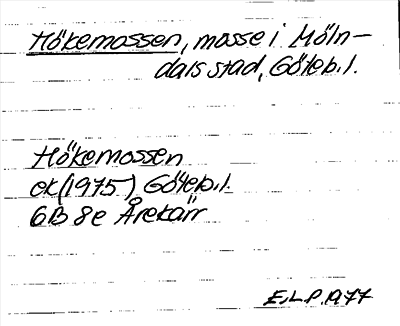 Hökemossen, mosse i Möln-
dals stad, Göteb.l.
Hökemossen
ek (1975) Göteb.l.
6B 8e Årekärr
E.L.P. 1977